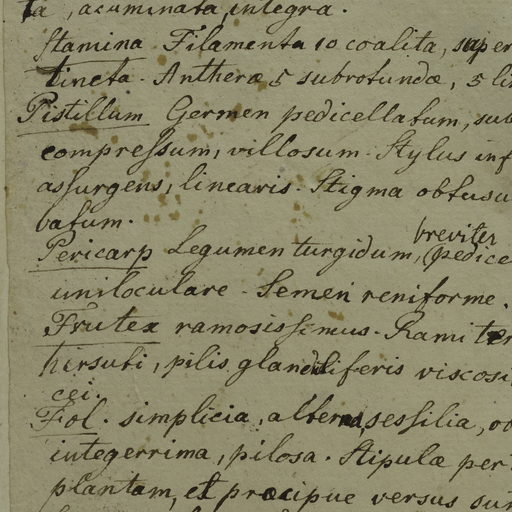 ta, acuminata, integra.
Stamina Filamenta 10 coalita, super
tincta. Antheræ 5 subrotundæ, 5 lin
Pistillum Germen pedicellatum, sub
compressum, villosum. Stylus inf
assurgens, linearis. Stigma obtusu
batum.
breviter
Pericarp Legumen turgidum, (pedice
uniloculare. Semen reniforme.
Frutex ramosissimus. Rami ter
hirsuti, pilis glanduliferis viscosi
cei.
Fol. simplicia, alterna, sessilia, ob
integerrima, pilosa. Stipulæ per
plantam, et præcipue versus sum